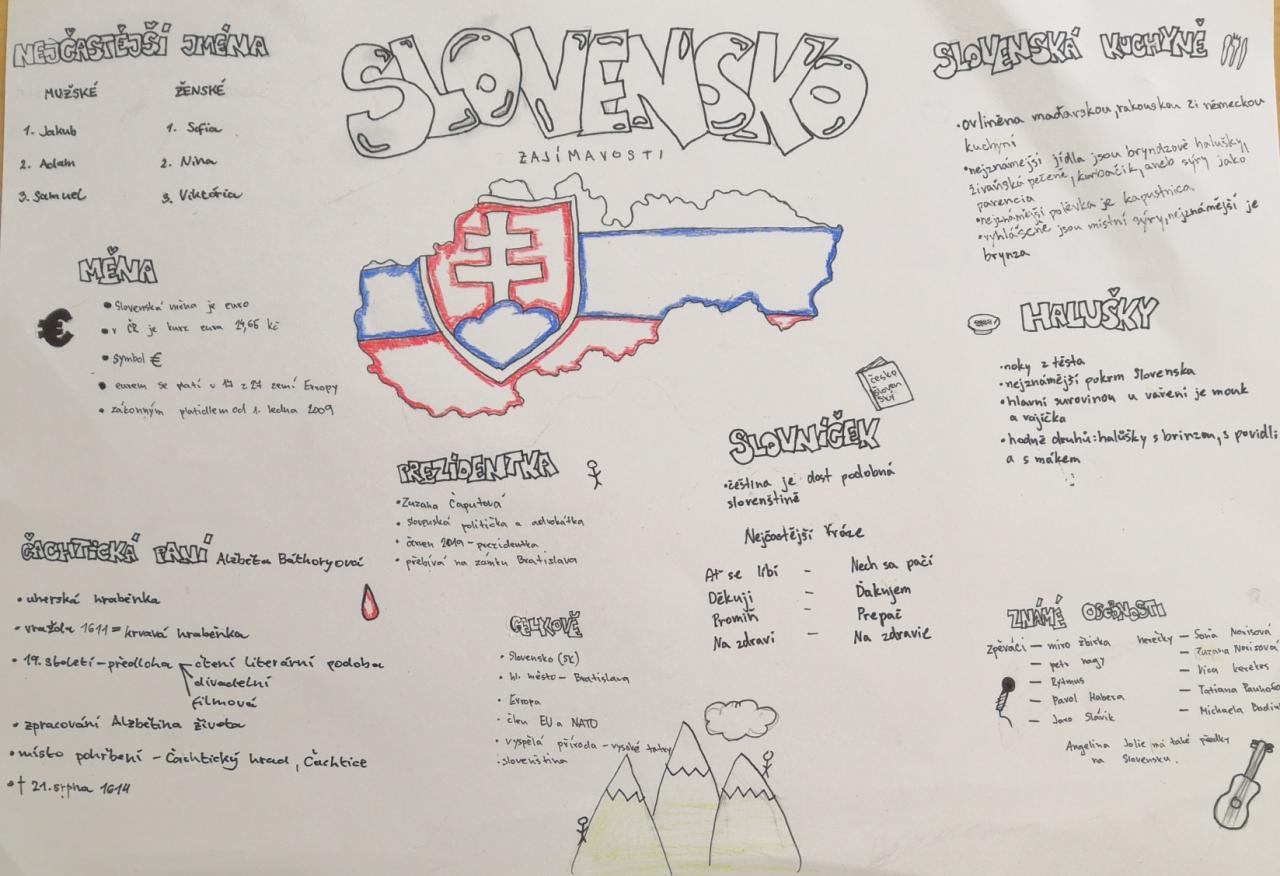 SLOVENSKO
ZAJÍMAVOSTI
NEJČASTĚJŠÍ JMÉNA
MUŽSKÉ ŽENSKÉ
1. Jakub 1. Sofia
2. Adam 2. Nina
3. Samuel 3. Viktória
MĚNA
• Slovenská měna je euro
• v ČR je kurz eura 24,66 kč
• symbol €
• eurem se platí v 17 z 27 zemí Evropy
• zákonným platidlem od 1. ledna 2009
ČACHTICKÁ PANÍ Alzběta Báthoryová
• uherská hraběnka
• vražda 1611 = krvavá hraběnka
• 19. století - předloha čtení literární podoba
divadelní
filmová
• zpracování Alzbětina života
• místo pohřbení - Čachtický hrad, Čachtice
• † 21. srpna 1614
PREZIDENTKA
• Zuzana Čaputová
• slovenská politička a advokátka
• červen 2019 - prezidentka
• přebívá na zámku Bratislava
CELKOVĚ
• Slovensko (SK)
• hl. město - Bratislava
• Evropa
• člen EU a NATO
• vyspělá příroda - vysoké tatry
• slovenština
česko
sloven
ský
SLOVNÍČEK
• čeština je dost podobná
slovenštině
Nejčastější fráze
Ať se líbí - Nech sa pačí
Děkuji - Ďakujem
Promiň - Prepač
Na zdraví - Na zdravie
SLOVENSKÁ KUCHYNĚ
• ovliněna maďarskou, rakouskou či německou
kuchyní
• nejznámejší jídla jsou bryndzové halušky,
živaňská pečeně, korbačik, aneb sýry jako
parencia
• nejznámější polévka je kapustnica
• vyhlášené jsou místní sýry, nejznámější je
brynza
HALUŠKY
• noky z těsta
• nejznámější pokrm Slovenska
• hlavní surovinou u vaření je mouk
a vajíčka
• hodně druhů: halušky s brinzou, s povidli
a s mákem
ZNÁMÉ OSOBNOSTI
zpěváci - miro žbirka herečky - Soňa Norisová
- petr nagy - Zuzana Norisová
- Rytmus - Vica kerekes
- Pavol Habera - Tatiana Pauhofo
- Jaro Slávik - Michaela Bodin
Angelina Jolie má také předky
na Slovensku.